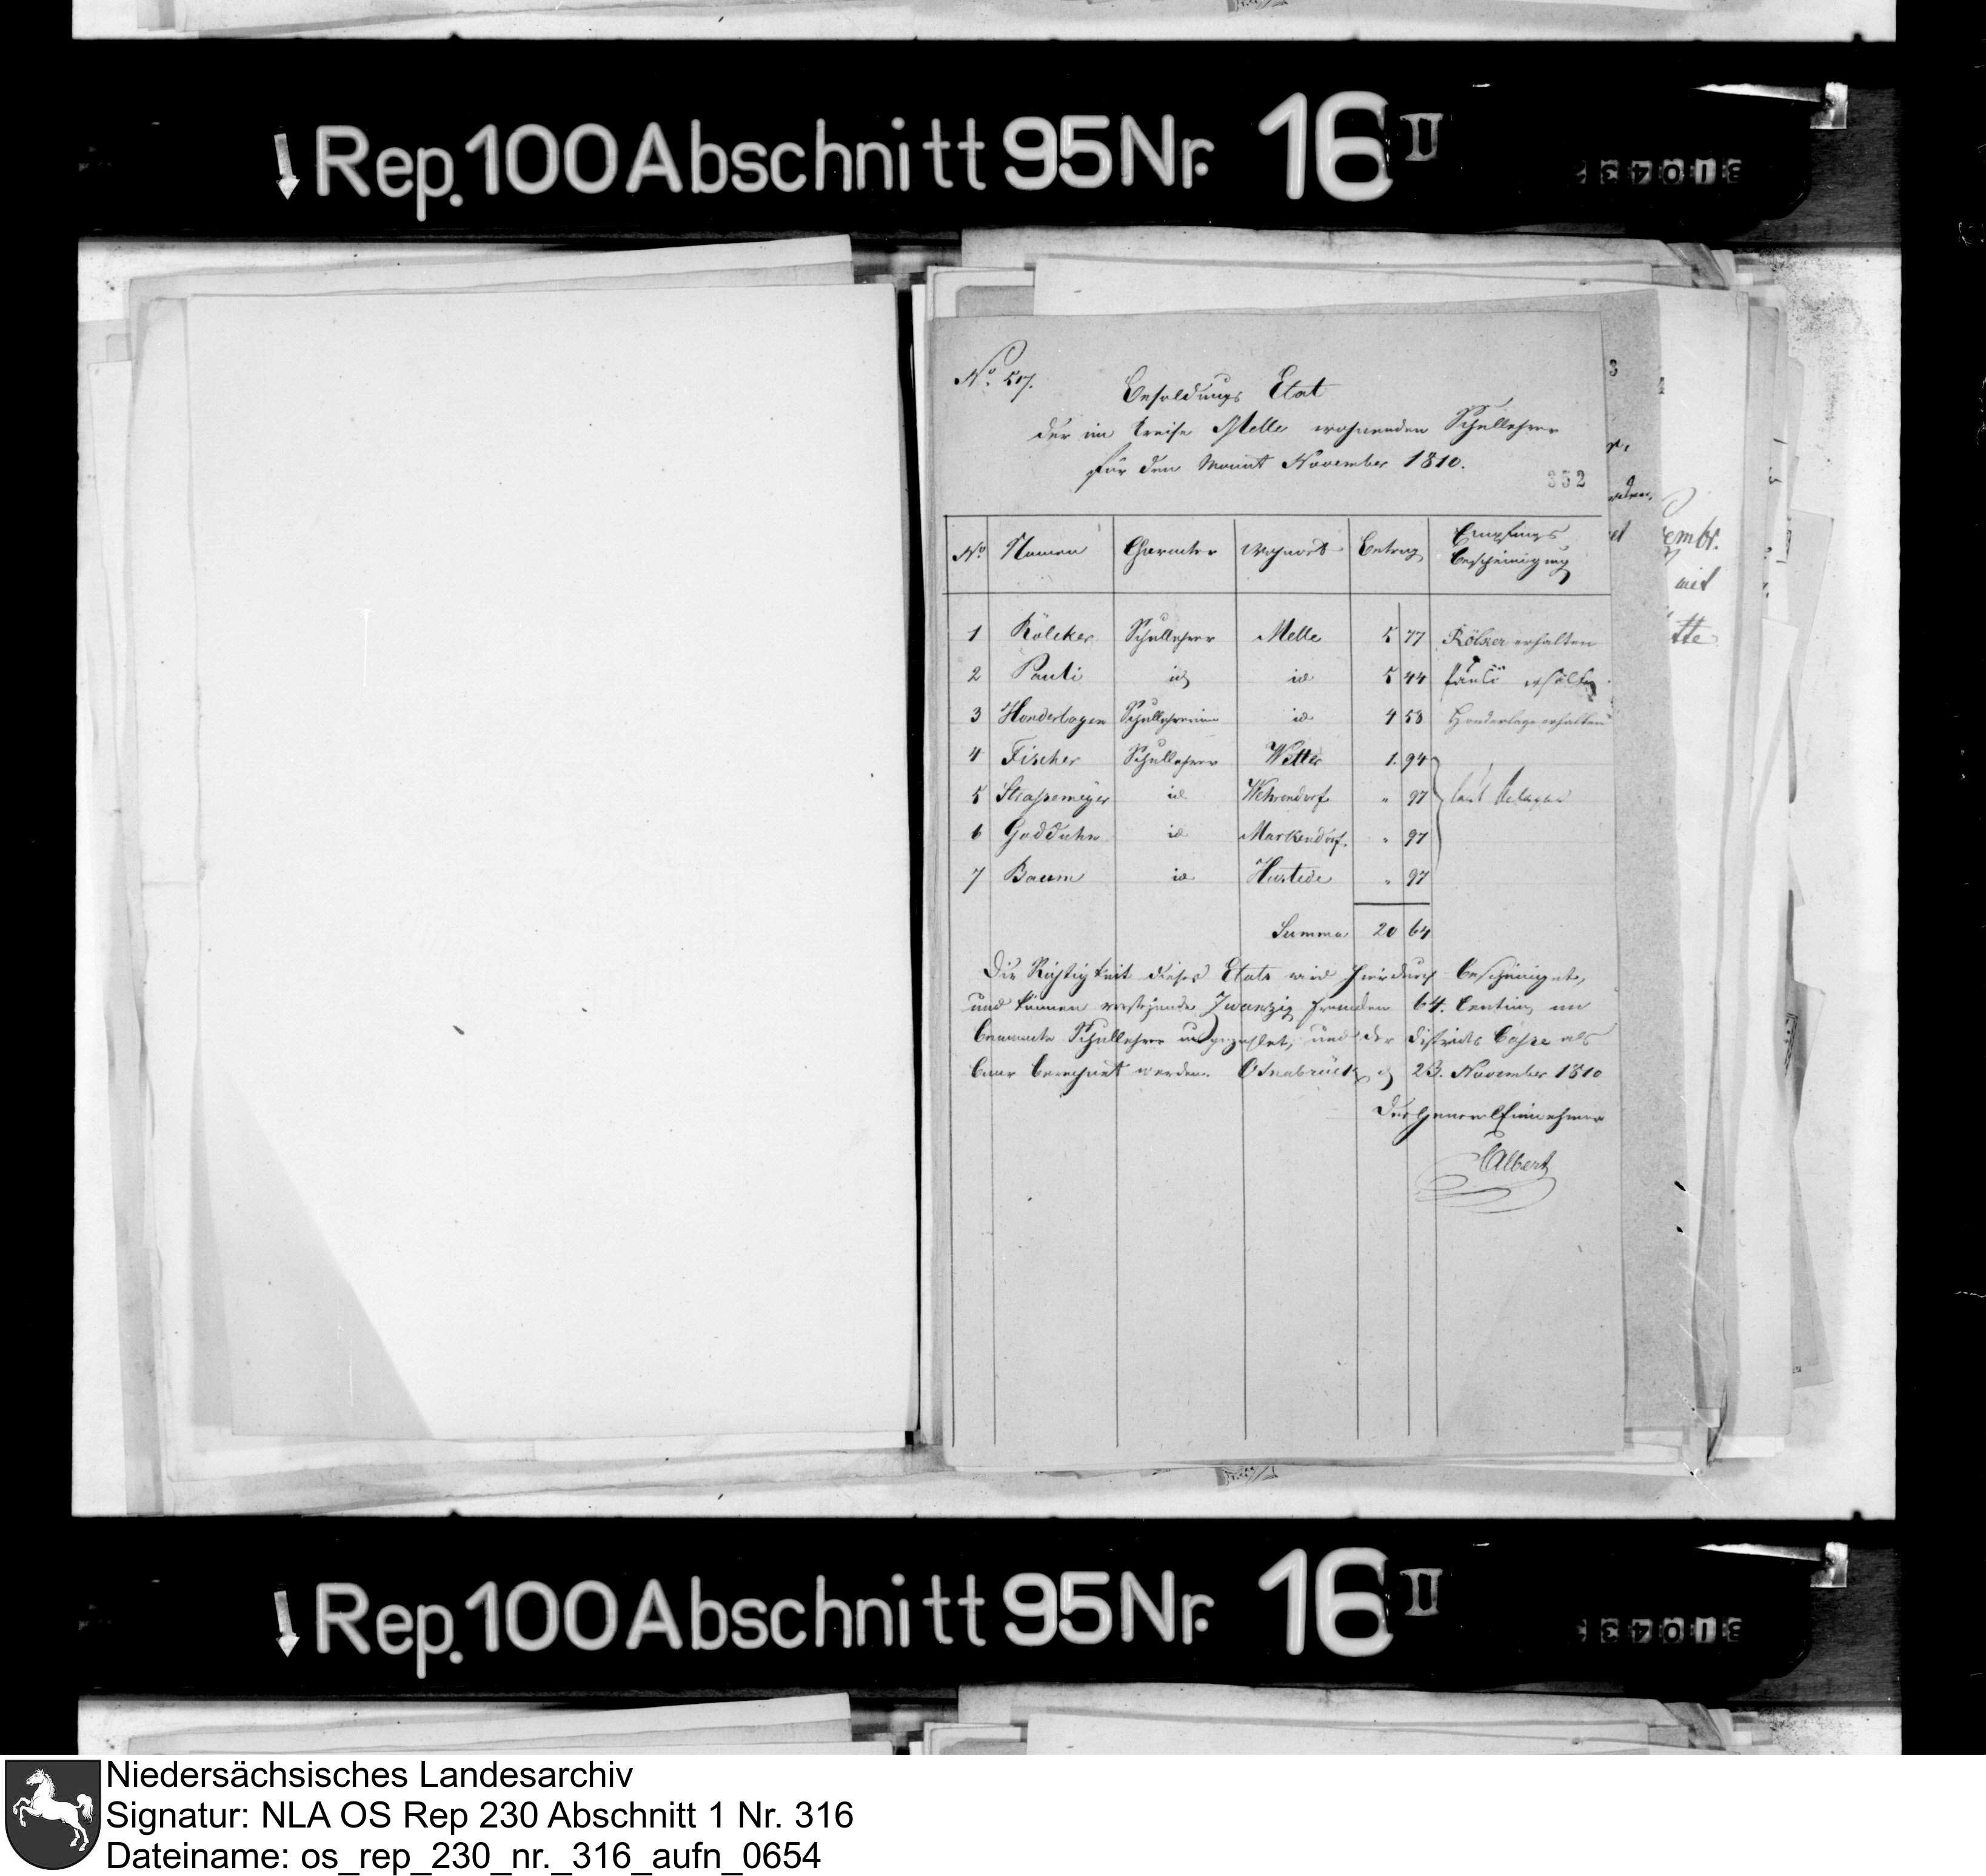 Rep. 100 Abschnitt 95 Nr. 16 II
31043
No. 517.
Besoldungs Etat
der im Kreise Melle wohnenden Schullehrer
für den Monat November 1810.
352
No Namen Charakter Wohnort Betrag Empfangs Bescheinigung
1 Kölcker Schullehrer Melle 5 77 Kölker erhalten
2 Pauli id id 5 44 Pauli erhalten
3 Honderlagen Schullehrerinn id 4 58 Honderlage erhalten
4 Fischer Schullehrer Wetter 1. 94
5 Strassemeyer id Wehrendorf " 97 laut
6 Godduhn id Markendorf. " 97
7 Baum id Hustede " 97
Summa 20 64
Die Richtigkeit dieses Etats wird hierdurch bescheiniget,
und können vorstehende Zwanzig Franken 64. Centim an
benannte Schullehrer ausgezahlet, und der Districts Casse als
baar berechnet werden. Osnabrück d 23. November 1810
Der General Einnehmer
Albert
3
embr.
mit
tte
Rep. 100 Abschnitt 95 Nr. 16 II
31043
Niedersächsisches Landesarchiv
Signatur: NLA OS Rep 230 Abschnitt 1 Nr. 316
Dateiname: os_rep_230_nr._316_aufn_0654